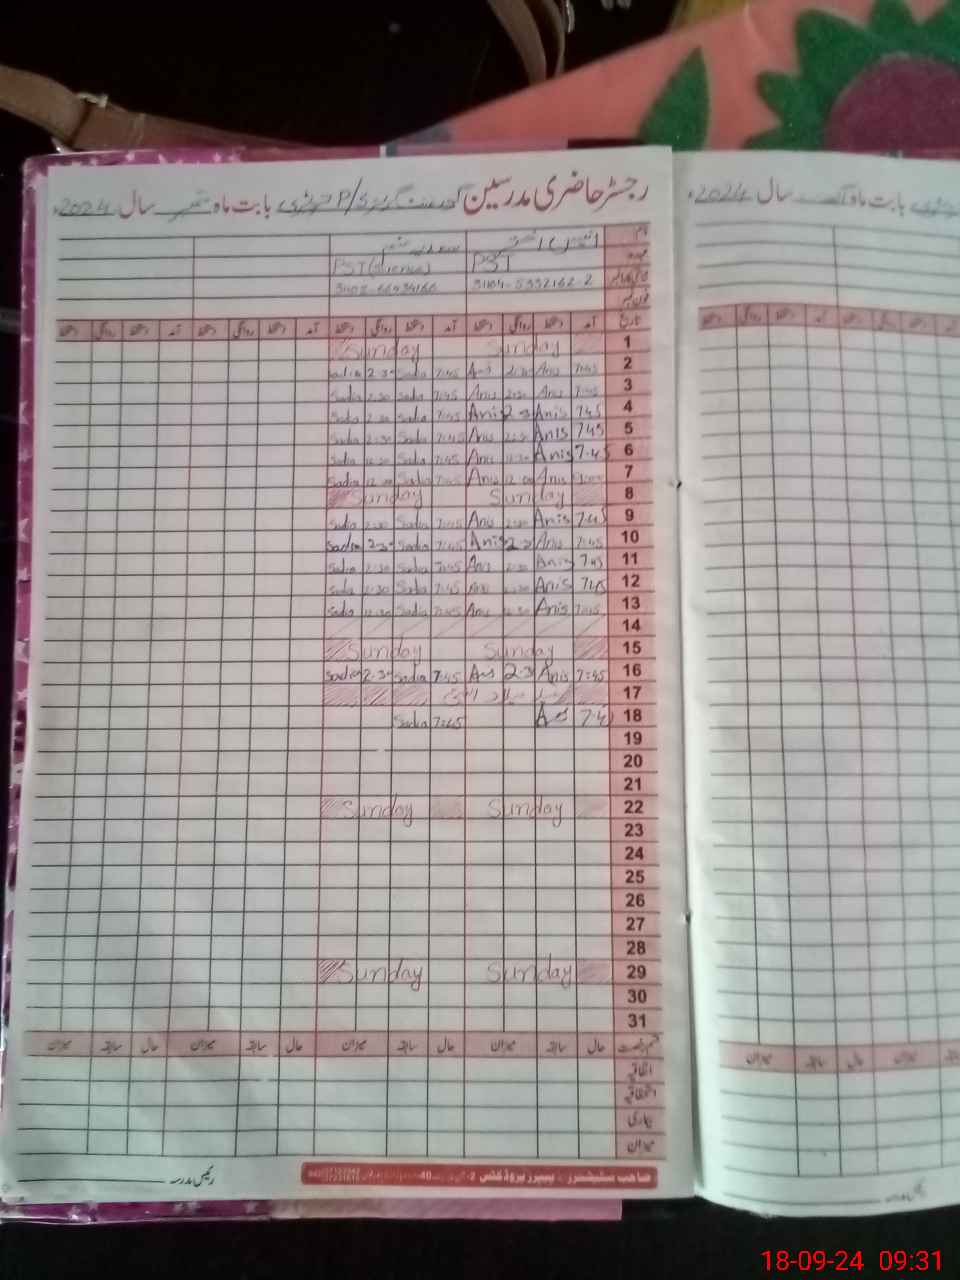 رجسٹر حاضری مدرسین گورنمنٹ گرلز P/S بابت ماہ ستمبر سال 2024ء
نام
عہدہ PST PST (Science)
شناختی کارڈ نمبر 31104-5332162-2
فون نمبر
تاریخ آمد دستخط روانگی دستخط آمد دستخط روانگی دستخط آمد دستخط روانگی دستخط آمد دستخط روانگی دستخط
1 Sunday Sunday
2 7:45 Anis 2:30 Anis 7:45 Sadia 2:30 Sadia
3 7:45 Anis 2:30 Anis 7:45 Sadia 2:30 Sadia
4 7:45 Anis 2:30 Anis 7:45 Sadia 2:30 Sadia
5 7:45 Anis 2:30 Anis 7:45 Sadia 2:30 Sadia
6 7:45 Anis 12:30 Anis 7:45 Sadia 12:30 Sadia
7 Anis 12:00 Anis 7:45 Sadia 12:00 Sadia
8 Sunday Sunday
9 7:45 Anis 2:30 Anis 7:45 Sadia 2:30 Sadia
10 7:45 Anis 2:30 Anis 7:45 Sadia 2:30 Sadia
11 7:45 Anis 2:30 Anis 7:45 Sadia 2:30 Sadia
12 7:45 Anis 2:30 Anis 7:45 Sadia 2:30 Sadia
13 7:45 Anis 12:30 Anis 7:45 Sadia 12:30 Sadia
14
15 Sunday Sunday
16 7:45 Anis 2:30 Anis 7:45 Sadia 2:30 Sadia
17 عید میلاد النبی
18 7:45 Anis 7:45 Sadia
19
20
21
22 Sunday Sunday
23
24
25
26
27
28
29 Sunday Sunday
30
31
قسم رخصت حال سابقہ میزان حال سابقہ میزان حال سابقہ میزان حال سابقہ میزان
اتفاقیہ
استحقاقیہ
بیماری
میزان
صاحب سٹیشنرز پیپرز پروڈکٹس
رئیس مدرسہ
بابت ماہ اگست سال 2024ء
دستخط روانگی دستخط آمد دستخط روانگی دستخط
میزان سابقہ حال میزان
رئیس مدرسہ
18-09-24 09:31